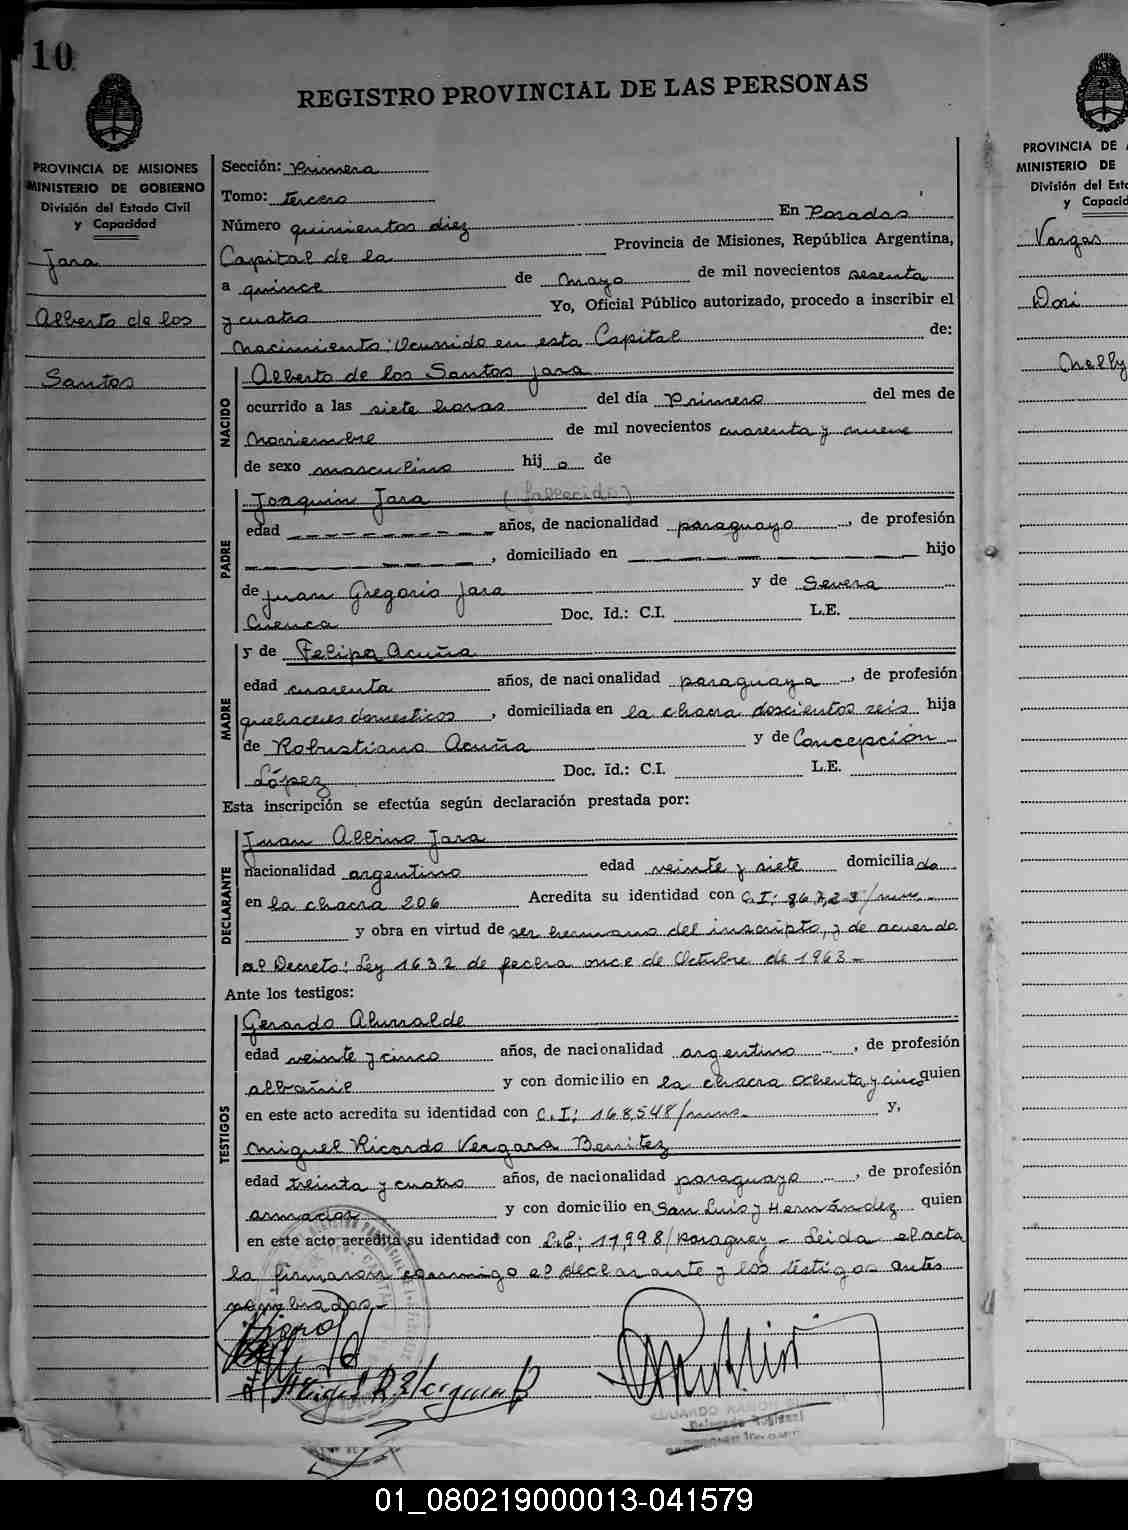 10
REGISTRO PROVINCIAL DE LAS PERSONAS
PROVINCIA DE MISIONES
MINISTERIO DE GOBIERNO
División del Estado Civil
y Capacidad
Jara
Alberto de los
Santos
Sección: Primera
Tomo: tercero
Número quinientos diez En Posadas
Capital de la Provincia de Misiones, República Argentina,
a quince de mayo de mil novecientos sesenta
y cuatro Yo, Oficial Público autorizado, procedo a inscribir el
Nacimiento: Ocurrido en esta Capital de:
NACIDO
Alberto de los Santos Jara
ocurrido a las siete horas del día Primero del mes de
Noviembre de mil novecientos cuarenta y nueve
de sexo masculino hij o de
PADRE
Joaquin Jara (fallecido)
edad años, de nacionalidad paraguayo, de profesión
, domiciliado en hijo
de Juan Gregorio Jara y de Severa
Cuenca Doc. Id.: C.I. L.E.
MADRE
y de Felipa Acuña
edad cuarenta años, de nacionalidad paraguaya, de profesión
quehaceres domesticos, domiciliada en la chacra doscientos seis hija
de Robustiano Acuña y de Concepción
López Doc. Id.: C.I. L.E.
Esta inscripción se efectúa según declaración prestada por:
DECLARANTE
Juan Albino Jara
nacionalidad argentino edad veinte y siete domicilia do
en la chacra 206 Acredita su identidad con C.I: 86723/mnes.
y obra en virtud de ser hermano del inscripto, y de acuerdo
al Decreto: Ley 1632 de fecha once de Octubre de 1963-
Ante los testigos:
TESTIGOS
Gerardo Alurralde
edad veinte y cinco años, de nacionalidad argentino, de profesión
albañil y con domicilio en la chacra ochenta y cinco quien
en este acto acredita su identidad con C.I: 168,548/mnes- y,
Miguel Ricardo Vergara Benitez
edad treinta y cuatro años, de nacionalidad paraguayo, de profesión
armador y con domicilio en San Luis y Hernández quien
en este acto acredita su identidad con L.E; 11,998/Paraguay - Leida el acta
la firmaron conmigo el declarante y los testigos antes
nombrados-
Miguel R. Vergara B
EDUARDO RAMON
Delegado Regional
PROVINCIA DE
MINISTERIO DE
División del Est
y Capacid
Vargas
Dori
Nelly
01_080219000013-041579